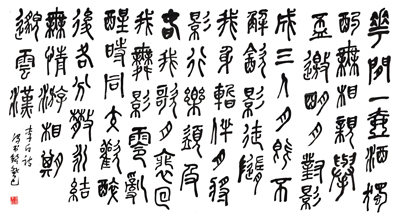 華間一壺酒獨
酌無相親舉
盃邀明月對影
成三人月既不
解飲影徒隨
我身暫伴月將
影行樂須及
春我歌月裵回
我舞影零亂
醒時同交歡醉
後各分散永結
無情游相期
邈雲漢
李白詩